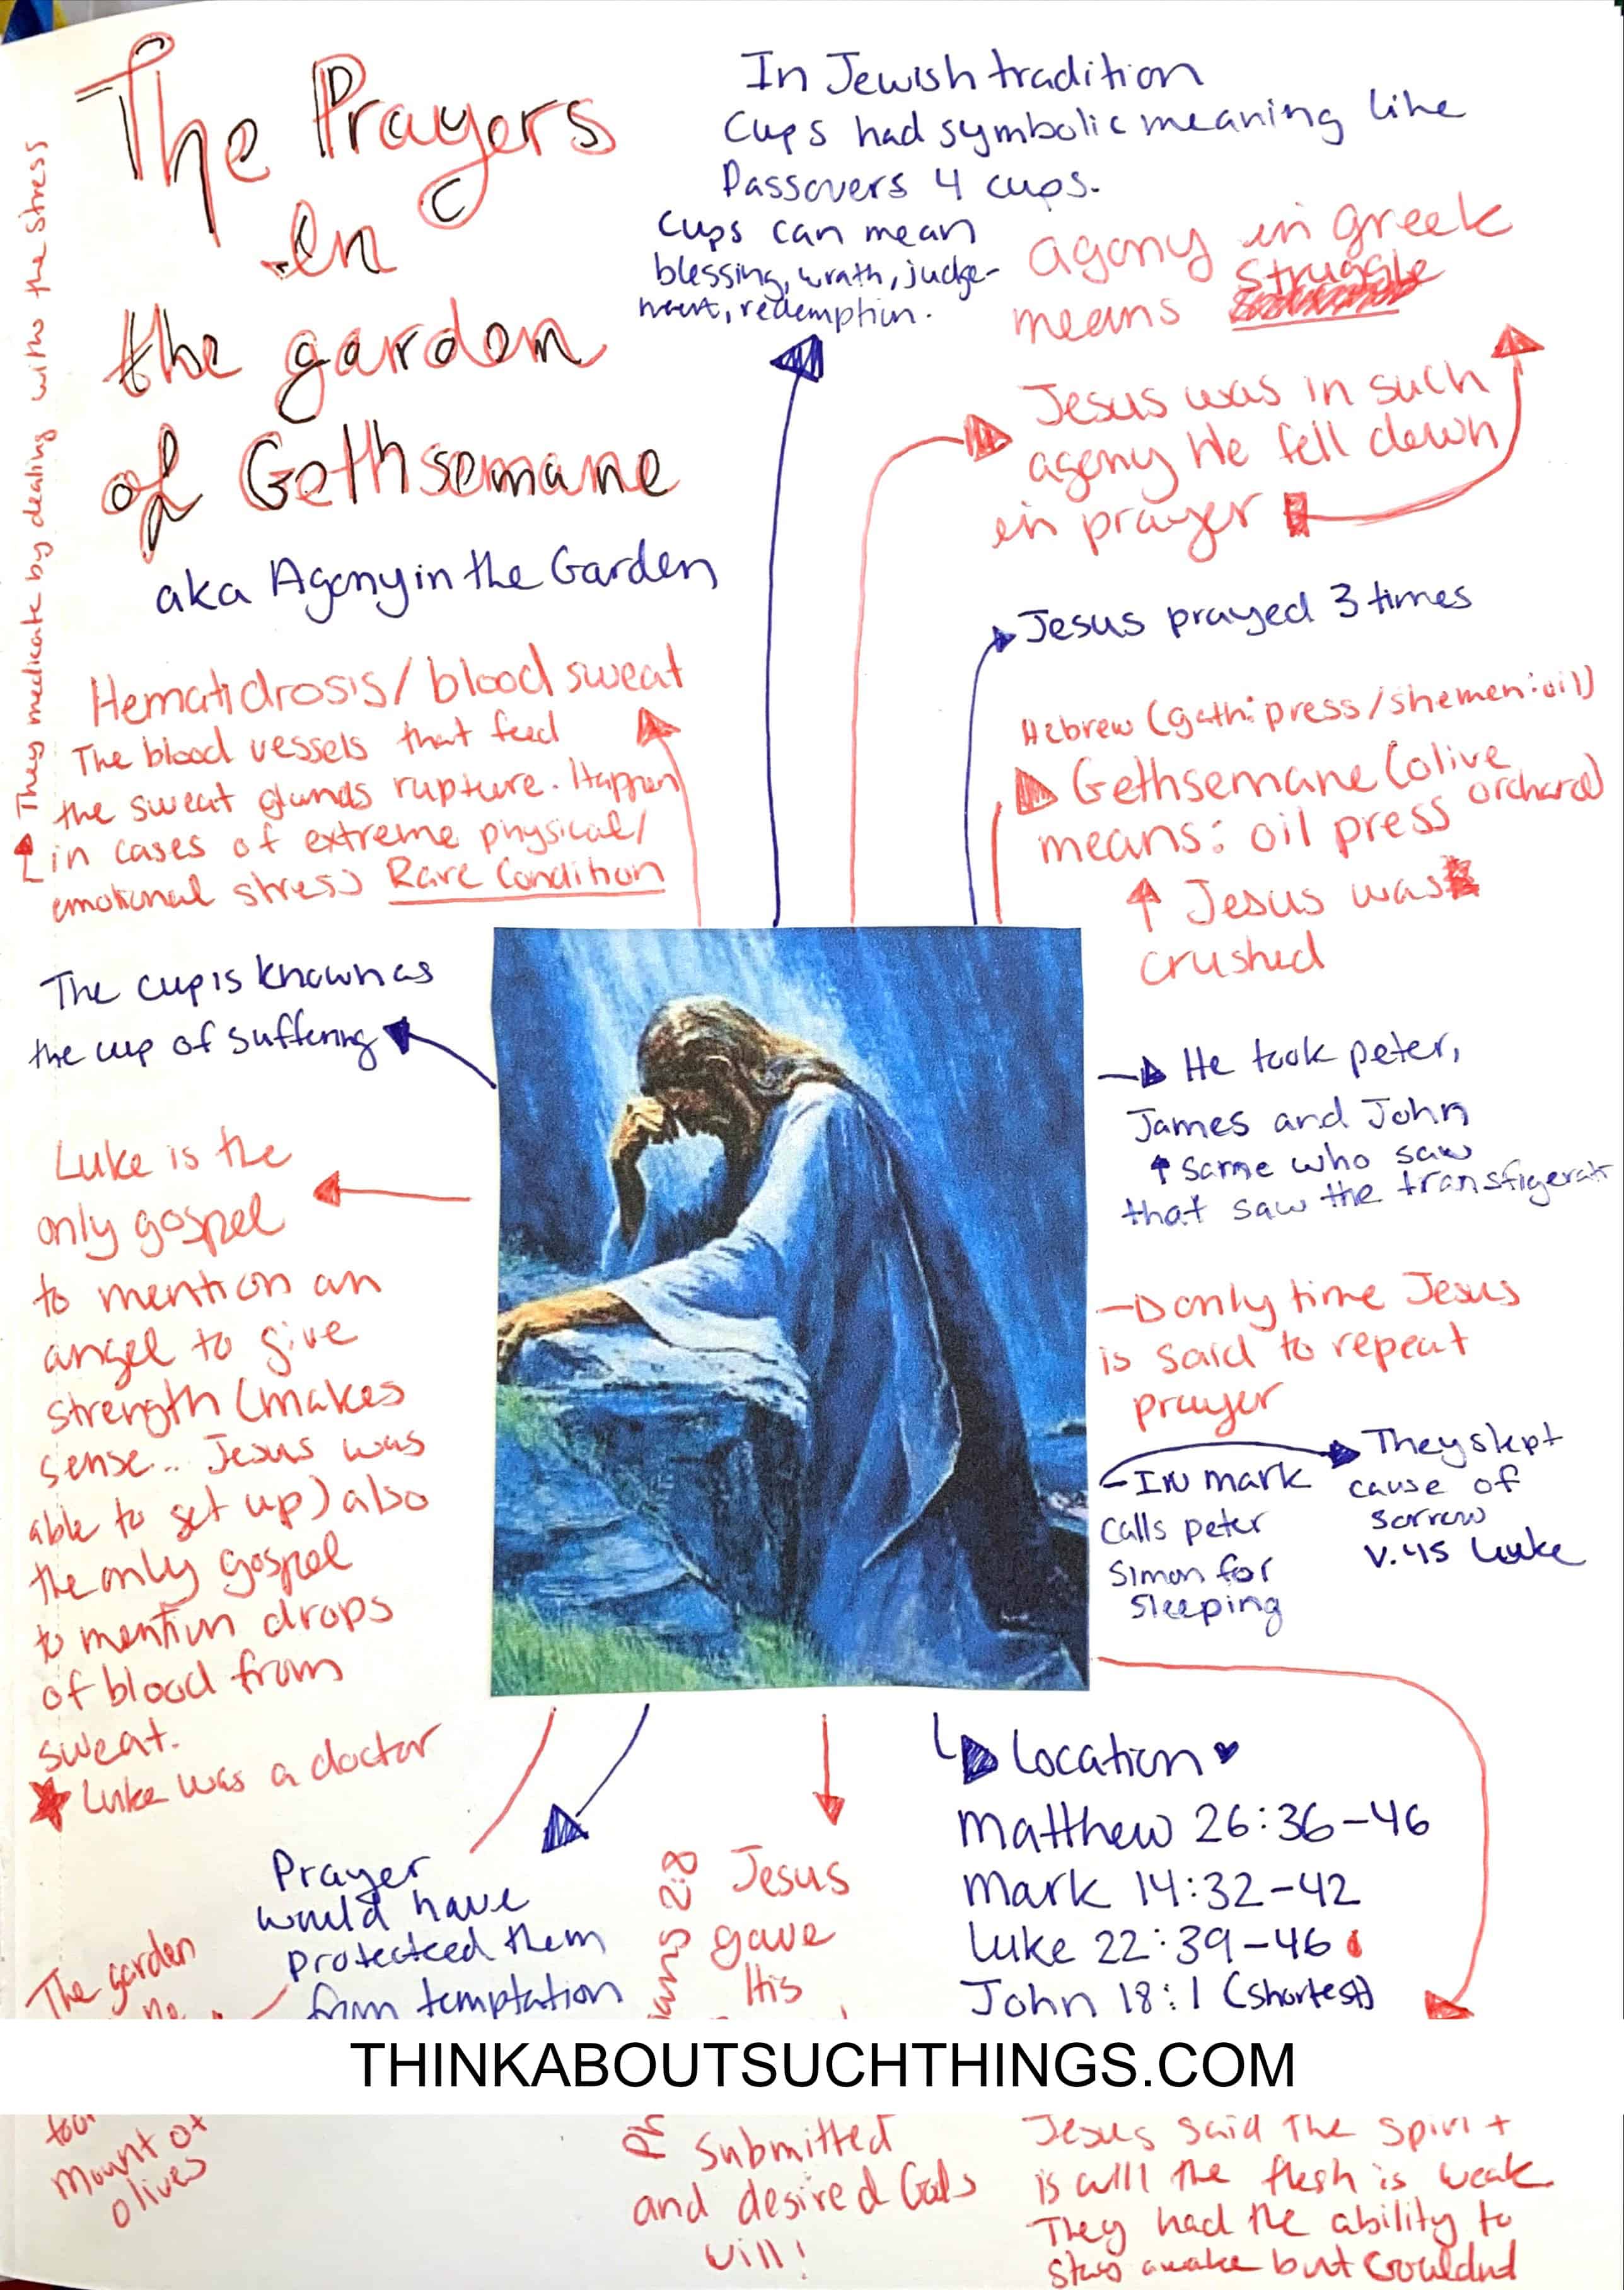 The Prayers
In
the garden
of Gethsemane
aka Agony in the Garden
In Jewish tradition
Cups had symbolic meaning like
Passovers 4 cups.
Cups can mean
blessing, wrath, judge-
ment, redemption.
agony in greek
means struggle
Jesus was in such
agony He fell down
in prayer
Jesus prayed 3 times
Hebrew (gath: press/shemen: oil)
Gethsemane (olive
orchard)
means: oil press
Jesus was
crushed
They medicate by dealing with the stress
Hematidrosis/blood sweat
The blood vessels that feed
the sweat glands rupture. Happen
in cases of extreme physical/
emotional stress Rare Condition
The cup is known as
the cup of suffering
Luke is the
only gospel
to mention an
angel to give
strength (makes
sense.. Jesus was
able to get up) also
the only gospel
to mention drops
of blood from
sweat.
Luke was a doctor
He took peter,
James and John
same who saw
that saw the transfigerat
only time Jesus
is said to repeat
prayer
- IN mark
calls peter
Simon for
sleeping
They slept
cause of
sorrow
v.45 Luke
Location
Matthew 26:36-46
Mark 14:32-42
Luke 22:39-46
John 18:1 (shortest)
Prayer
would have
protecteed them
from temptation
The garden
Jesus
gave
His
2:8
THINKABOUTSUCHTHINGS.COM
Mount of
olives
submitted
and desired Gods
will!
Jesus said The spirit
is will the flesh is weak
They had the ability to
stay awake but wouldnd